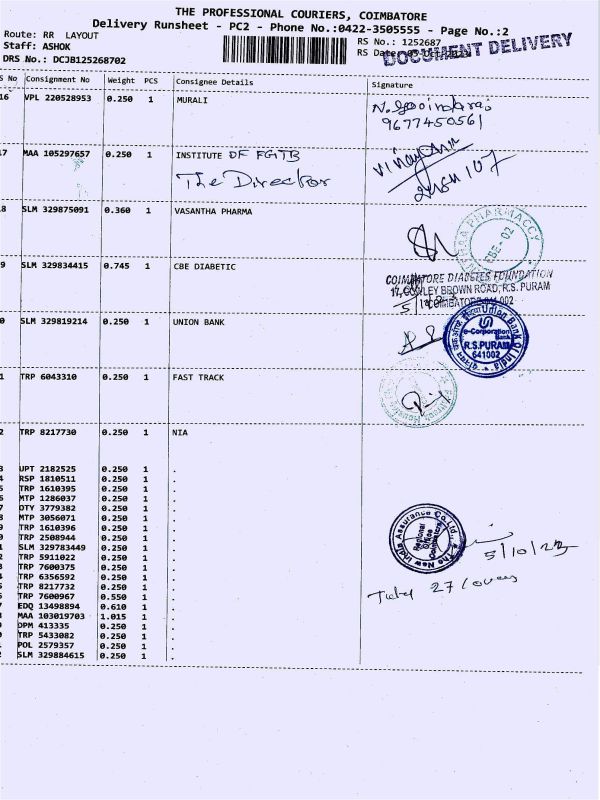 THE PROFESSIONAL COURIERS, COIMBATORE
Delivery Runsheet - PC2 - Phone No.:0422-3505555 - Page No.:2
Route: RR LAYOUT
Staff: ASHOK
DRS No.: DCJB125268702
RS No.: 1252687
RS Date:
DOCUMENT DELIVERY
S No Consignment No Weight PCS Consignee Details Signature
16 VPL 220528953 0.250 1 MURALI
9677450561
7 MAA 105297657 0.250 1 INSTITUTE OF FGTB
The Director
8 SLM 329875091 0.360 1 VASANTHA PHARMA
PHARMACCY
CBE-02
9 SLM 329834415 0.745 1 CBE DIABETIC
COIMBATORE DIABETES FOUNDATION
17, COWLEY BROWN ROAD, R.S. PURAM
COIMBATORE-641 002
0 SLM 329819214 0.250 1 UNION BANK
Union Bank Of India
e-Corporation Bank
R.S.PURAM
641002
1 TRP 6043310 0.250 1 FAST TRACK
2 TRP 8217730 0.250 1 NIA
3 UPT 2182525 0.250 1 .
4 RSP 1810511 0.250 1 .
5 TRP 1610395 0.250 1 .
6 MTP 1286037 0.250 1 .
7 OTY 3779382 0.250 1 .
8 MTP 3056071 0.250 1 .
9 TRP 1610396 0.250 1 .
0 TRP 2508944 0.250 1 .
1 SLM 329783449 0.250 1 .
2 TRP 5911022 0.250 1 .
3 TRP 7600375 0.250 1 .
4 TRP 6356592 0.250 1 .
5 TRP 8217732 0.250 1 .
6 TRP 7600967 0.550 1 .
7 EDQ 13498894 0.610 1 .
8 MAA 103019703 1.015 1 .
9 DPM 413335 0.250 1 .
0 TRP 5433082 0.250 1 .
1 POL 2579357 0.250 1 .
2 SLM 329884615 0.250 1 .
The New India Assurance Co.Ltd.,
Regional Office
Coimbatore
5/10/23
27 Covers